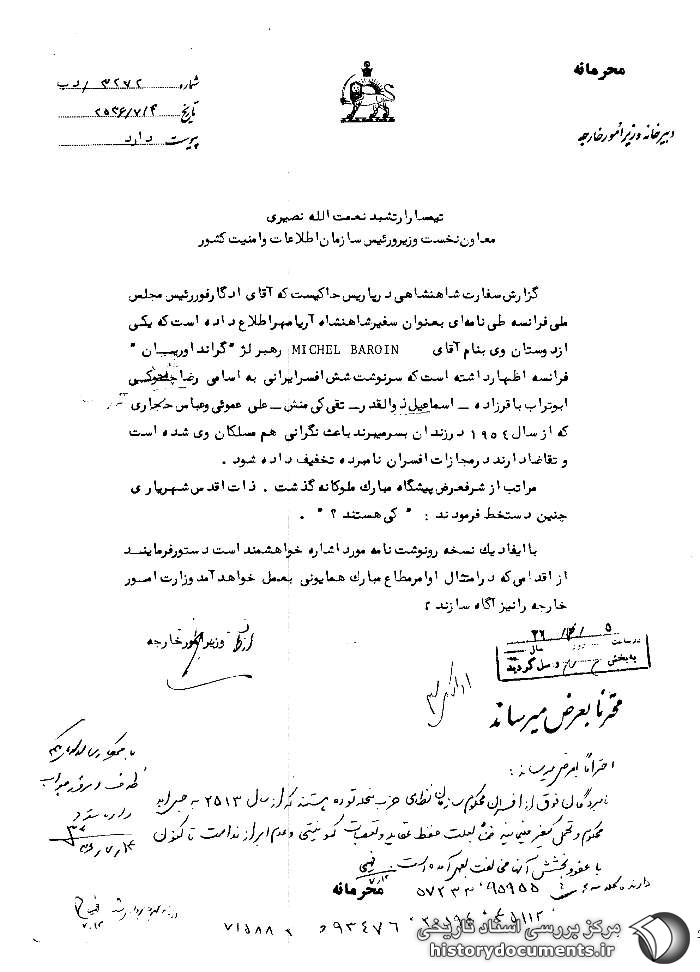 محرمانه
شماره ۳۲۷۲/دب
تاریخ ۲۵۳۶/۷/۴
پیوست دارد
دبیرخانه وزیر امور خارجه
تیمسار ارتشبد نعمت الله نصیری
معاون نخست وزیر و رئیس سازمان اطلاعات و امنیت کشور
گزارش سفارت شاهنشاهی در پاریس حاکیست که آقای ادگار فور رئیس مجلس
ملی فرانسه طی نامه‌ای بعنوان سفیر شاهنشاه آریامهر اطلاع داده است که یکی
از دوستان وی بنام آقای MICHEL BAROIN رهبر لژ "گراند اوریان"
فرانسه اظهار داشته است که سرنوشت شش افسر ایرانی به اسامی رضا شلتوکی
ابوتراب باقرزاده - اسماعیل ذوالقدر - تقی کی منش - علی عموئی و عباس حجاری
که از سال ۱۹۵۴ در زندان بسر میبرند باعث نگرانی هم مسلکان وی شده است
و تقاضا دارند در مجازات افسران نامبرده تخفیف داده شود .
مراتب از شرفعرض پیشگاه مبارك ملوکانه گذشت . ذات اقدس شهریاری
چنین دستخط فرمودند : " کی هستند ؟ " .
با ایفاد یك نسخه رونوشت نامه مورد اشاره خواهشمند است دستور فرمایند
از اقدامی که در امتثال اوامر مطاع مبارك همایونی بعمل خواهد آمد وزارت امور
خارجه را نیز آگاه سازند ؟
وزیر امور خارجه
در ساعت
سال
به بخش واصل گردید
محترماً بعرض میرساند
احتراماً بعرض میرساند :
نامبردگان فوق از افسران محکوم سازمان نظامی حزب منحله توده هستند که از سال ۲۵۱۳ به حبس ابد
محکوم و تحمل کیفر مینمایند ضمناً بعلت حفظ عقاید و تعصبات کمونیستی و عدم ابراز ندامت تاکنون
با عفو و بخشش آنها مخالفت بعمل آمده است.
محرمانه
۵۷۲۳۳ ۹۵۹۵۵
۷۱۵۸۸
مرکز بررسی اسناد تاریخی
historydocuments.ir